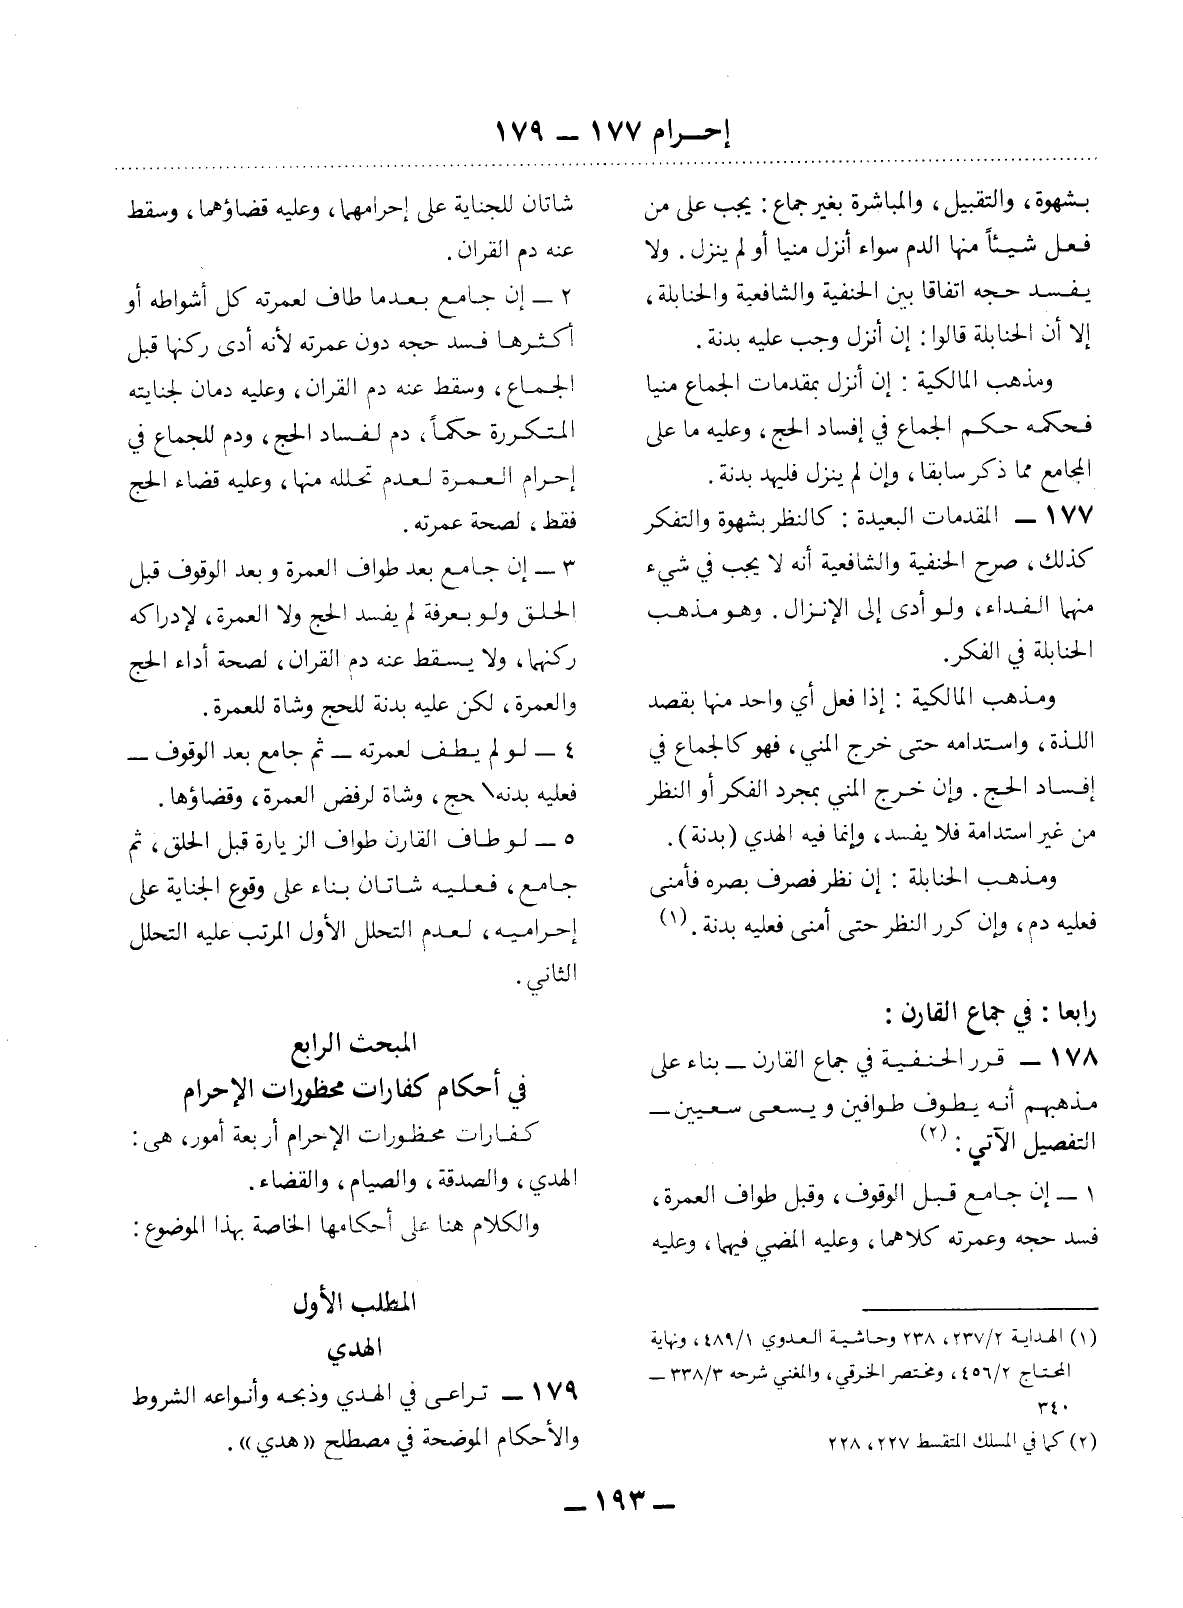 إحرام ١٧٧ — ١٧٩
بشهوة، والتقبيل، والمباشرة بغير جماع: يجب على من
فعل شيئاً منها الدم سواء أنزل منيا أو لم ينزل. ولا
يفسد حجه اتفاقا بين الحنفية والشافعية والحنابلة،
إلا أن الحنابلة قالوا: إن أنزل وجب عليه بدنة.
ومذهب المالكية: إن أنزل بمقدمات الجماع منيا
فحكمه حكم الجماع في إفساد الحج، وعليه ما على
المجامع مما ذكر سابقا، وإن لم ينزل فليهد بدنة.
١٧٧ — المقدمات البعيدة: كالنظر بشهوة والتفكر
كذلك، صرح الحنفية والشافعية أنه لا يجب في شيء
منها الفداء، ولو أدى إلى الإنزال. وهو مذهب
الحنابلة في الفكر.
ومذهب المالكية: إذا فعل أي واحد منها بقصد
اللذة، واستدامه حتى خرج المني، فهو كالجماع في
إفساد الحج. وإن خرج المني بمجرد الفكر أو النظر
من غير استدامة فلا يفسد، وإنما فيه الهدي (بدنة).
ومذهب الحنابلة: إن نظر فصرف بصره فأمنى
فعليه دم، وإن كرر النظر حتى أمنى فعليه بدنة. (١)
رابعا: في جماع القارن:
١٧٨ — قرر الحنفية في جماع القارن — بناء على
مذهبهم أنه يطوف طوافين ويسعى سعيين —
التفصيل الآتي: (٢)
١ — إن جامع قبل الوقوف، وقبل طواف العمرة،
فسد حجه وعمرته كلاهما، وعليه المضي فيهما، وعليه
(١) الهداية ٢٣٧/٢، ٢٣٨ وحاشية العدوي ٤٨٩/١، ونهاية
المحتاج ٤٥٦/٢، ومختصر الخرقي، والمغني شرحه ٣٣٨/٣ —
٣٤٠
(٢) كما في المسلك المتقسط ٢٢٧، ٢٢٨
شاتان للجناية على إحرامهما، وعليه قضاؤهما، وسقط
عنه دم القران.
٢ — إن جامع بعدما طاف لعمرته كل أشواطه أو
أكثرها فسد حجه دون عمرته لأنه أدى ركنها قبل
الجماع، وسقط عنه دم القران، وعليه دمان لجنايته
المتكررة حكماً، دم لفساد الحج، ودم للجماع في
إحرام العمرة لعدم تحلله منها، وعليه قضاء الحج
فقط، لصحة عمرته.
٣ — إن جامع بعد طواف العمرة وبعد الوقوف قبل
الحلق ولو بعرفة لم يفسد الحج ولا العمرة، لإدراكه
ركنها، ولا يسقط عنه دم القران، لصحة أداء الحج
والعمرة، لكن عليه بدنة للحج وشاة للعمرة.
٤ — لو لم يطف لعمرته — ثم جامع بعد الوقوف —
فعليه بدنه\ حج، وشاة لرفض العمرة، وقضاؤها.
٥ — لو طاف القارن طواف الزيارة قبل الحلق، ثم
جامع، فعليه شاتان بناء على وقوع الجناية على
إحراميه، لعدم التحلل الأول المرتب عليه التحلل
الثاني.
المبحث الرابع
في أحكام كفارات محظورات الإحرام
كفارات محظورات الإحرام أربعة أمور، هى:
الهدي، والصدقة، والصيام، والقضاء.
والكلام هنا على أحكامها الخاصة بهذا الموضوع:
المطلب الأول
الهدي
١٧٩ — تراعى في الهدي وذبحه وأنواعه الشروط
والأحكام الموضحة في مصطلح «هدي».
— ١٩٣ —